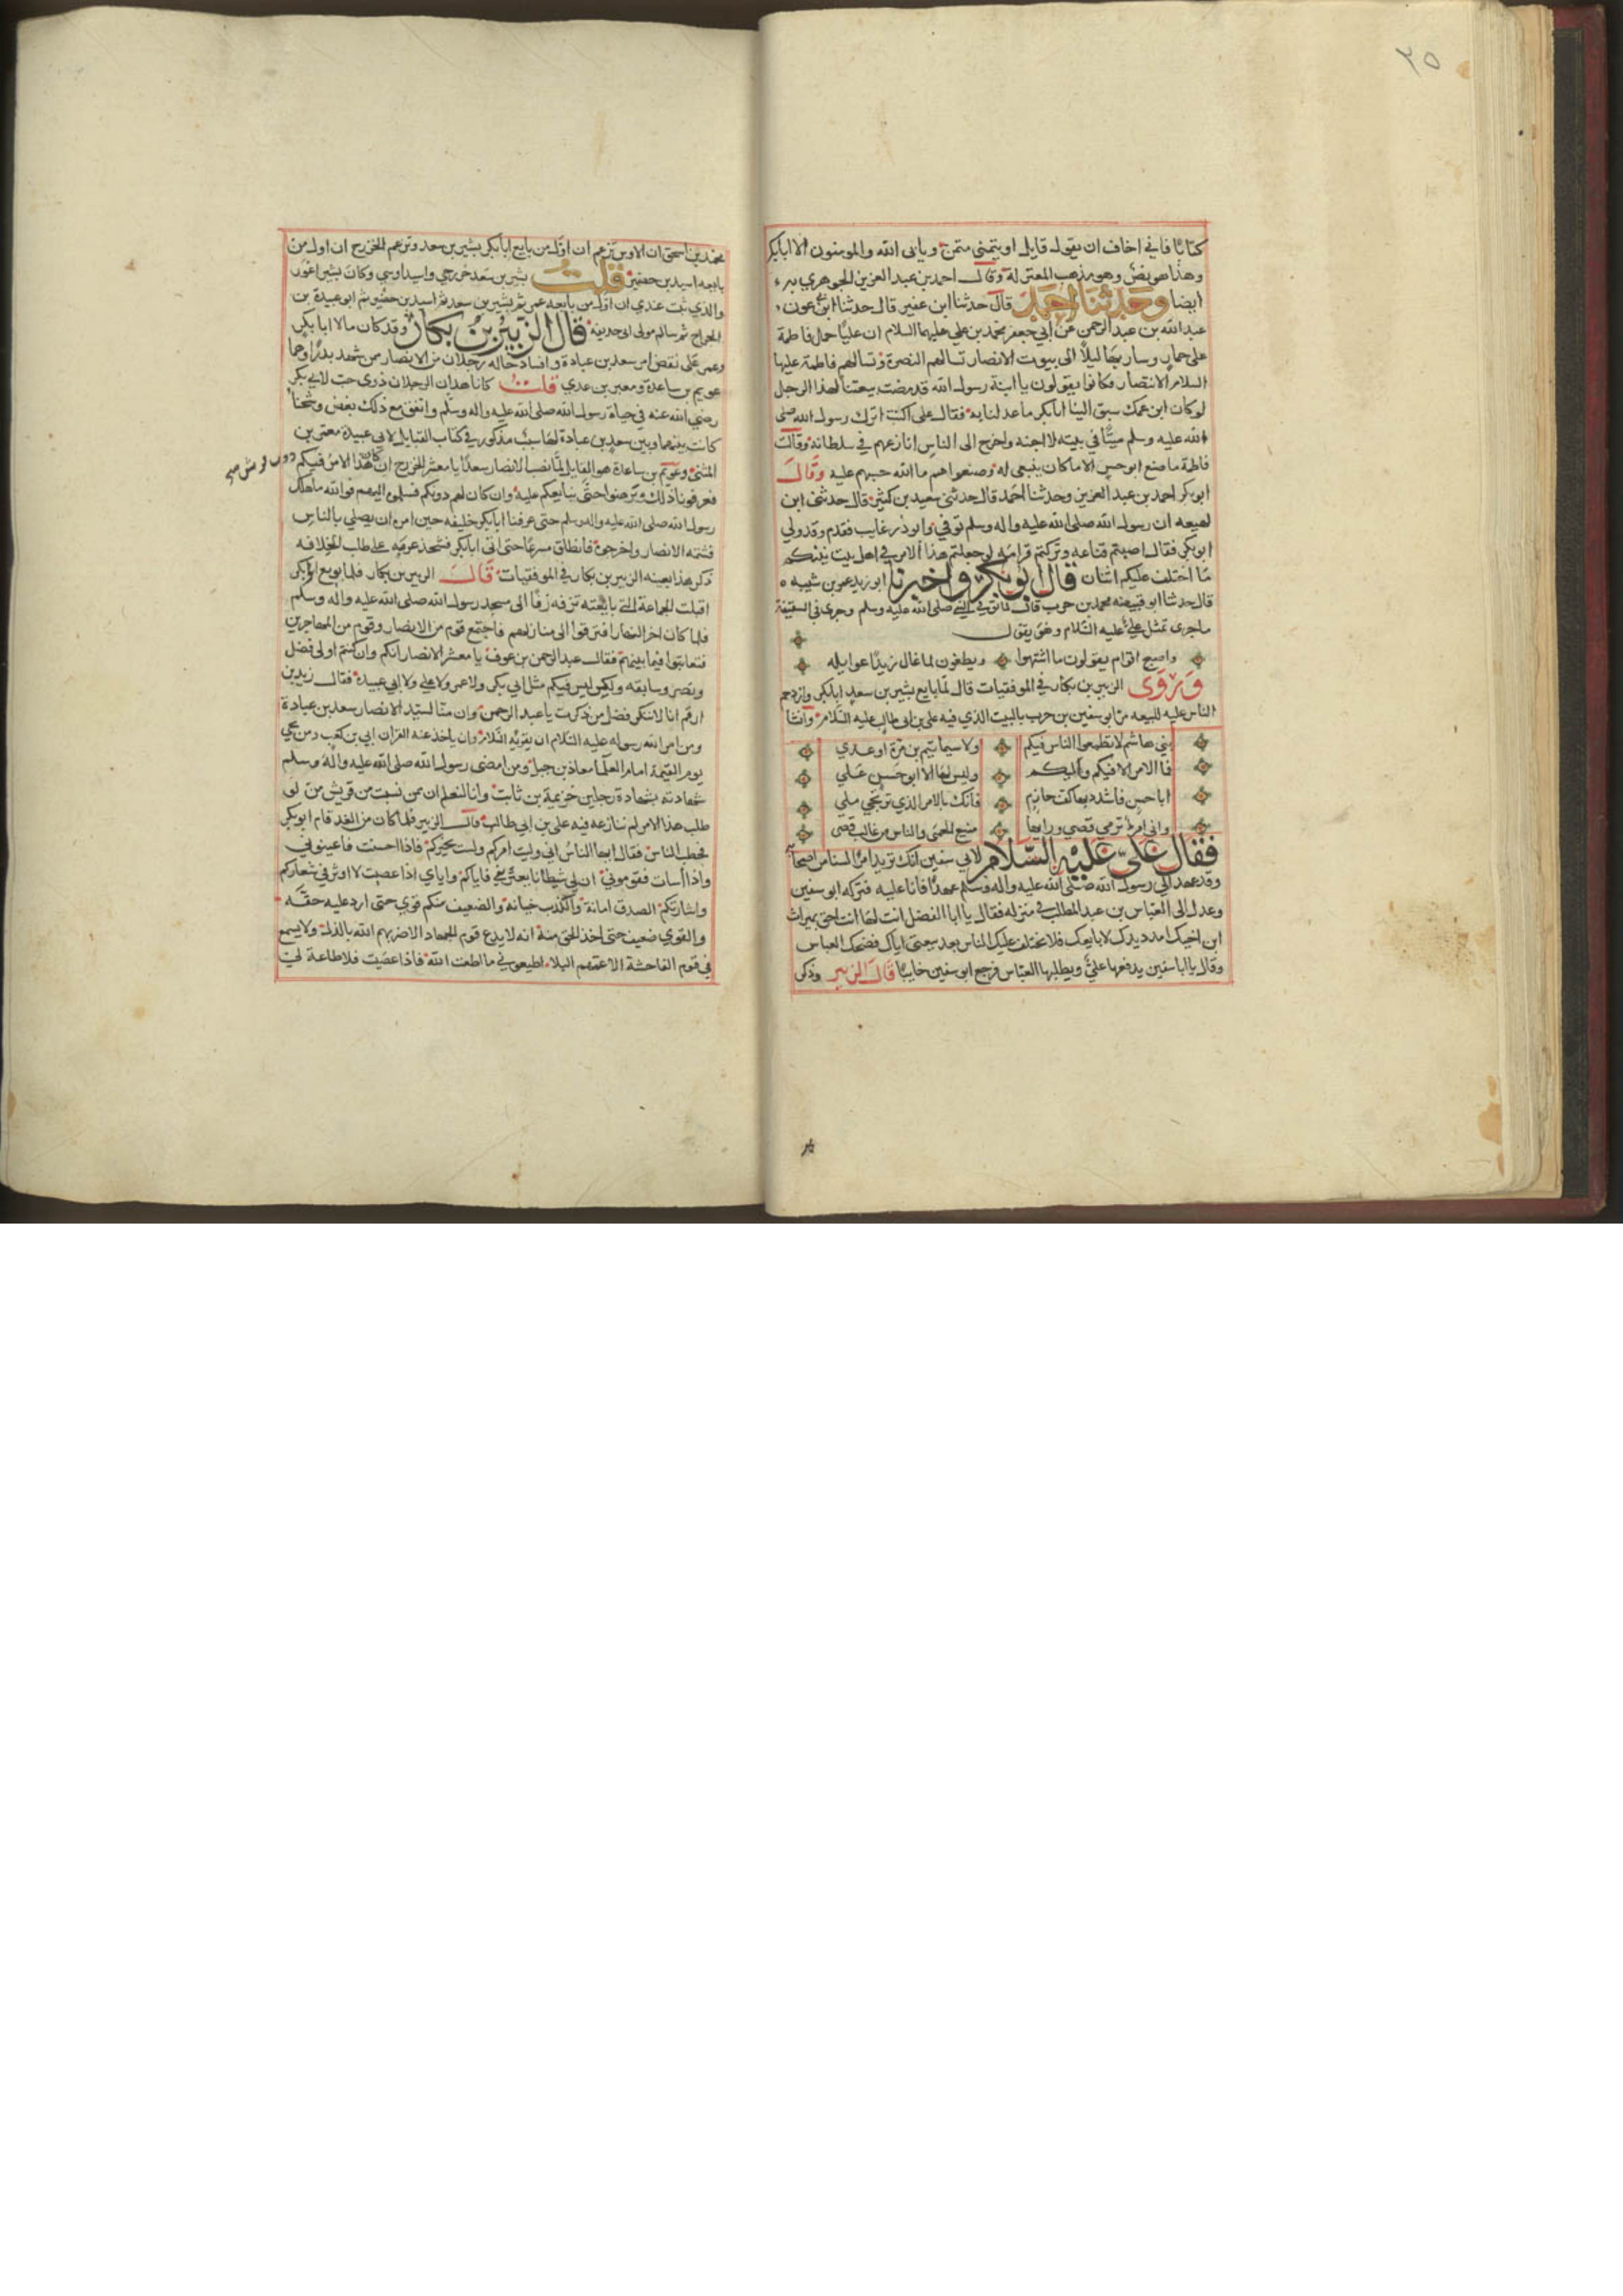 ٣٥
كتابا فاني اخاف ان يقول قايل او يتمنى متمن ويأبى الله والمومنون الا ابابكر
وهذا هو نص وهو مذهب المعتزله وقال احمد بن عبد العزيز الجوهري
ايضا وحدثنا احمد قال حدثنا ابن عفير قال حدثنا ابو عون
عبد الله بن عبد الرحمن عن ابي جعفر محمد بن علي عليهما السلام ان عليا حمل فاطمة
على حمار وسار بها ليلا الى بيوت الانصار تسالهم النصرة وتسالهم فاطمة عليها
السلام الانتصار فكانوا يقولون يا ابنة رسول الله قد مضت بيعتنا لهذا الرجل
لو كان ابن عمك سبق الينا ابابكر ما عدلنا به فقال علي اكنت اترك رسول الله صلى
الله عليه وسلم ميتا في بيته لا اجهنه واخرج الى الناس انازعهم في سلطانه وقالت
فاطمة ما صنع ابو حسن الا ما كان ينبغي له وصنعوا هم ما الله حسبهم عليه وقال
ابو بكر احمد بن عبد العزيز وحدثنا احمد قال حدثني سعيد بن كثير قال حدثني ابن
لهيعه ان رسول الله صلى الله عليه واله وسلم توفي وابو ذر غايب فقدم وقد ولي
ابو بكر فقال اصبتم قناعه وتركتم قرابه لو جعلتم هذا الامر في اهل بيت نبيكم
ما اختلف عليكم اثنان قال ابو بكر واخبرنا ابو زيد عمر بن شبيه
قال حدثنا ابو قبيصه محمد بن حرب قال لما توفي النبي صلى الله عليه وسلم وجرى في السقيفة
ما جرى تمثل علي عليه السلام وهو يقول
واصبح اقوام يقولون ما اشتهوا ويطغون لما غال زيدا غوايله
وروى الزبير بن بكار في الموفقيات قال لما بايع بشير بن سعد ابابكر وازدحم
الناس عليه للبيعه مر ابو سفين بن حرب بالبيت الذي فيه علي بن ابي طالب عليه السلام وانشا
بني هاشم لا تطمعوا الناس فيكم ولا سيما تيم بن مرة او عدي
فما الامر الا فيكم واليكم وليس لها الا ابو حسن علي
ابا حسن فاشدد بها كف حازم فانك بالامر الذي ترتجي ملي
واني امرء ترمي قصي وراءها منيع الحمى والناس من غالب قصي
فقال علي عليه السلام لابي سفين انك تريد امرا لسنا من اصحابه
وقد عهد الي رسول الله صلى الله عليه واله وسلم عهدا فانا عليه فتركه ابو سفين
وعدل الى العباس بن عبد المطلب في منزله فقال يا ابا الفضل انت لها انت احق بميراث
ابن اخيك امدد يدك لابايعك فلا يختلف عليك الناس بعد بيعتي اياك فضحك العباس
وقال يا ابا سفين يدفعها علي ويطلبها العباس فرجع ابو سفين خايبا قال الزبير وذكر
محمد بن اسحق ان الاوس تزعم ان اول من بايع ابابكر بشير بن سعد وتزعم الخزرج ان اول من
بايعه اسيد بن حضير قلت بشير بن سعد خزرجي واسيد اوسي وكان بشير اعور
والذي ثبت عندي ان اول من بايعه عمر ثم بشير بن سعد ثم اسيد بن حضير ثم ابو عبيدة بن
الجراح ثم سالم مولى ابي حذيفه قال الزبير بن بكار وقد كان مالا ابابكر
وعمر على نقض امر سعد بن عبادة وافساد حاله رجلان من الانصار ممن شهد بدرا وهما
عويم بن ساعدة ومعن بن عدي قلت كانا هذان الرجلان ذوي حب لابي بكر
رضي الله عنه في حياة رسول الله صلى الله عليه واله وسلم واتفق مع ذلك بغض وشحنا
كانت بينهما وبين سعد بن عبادة لها سبب مذكور في كتاب القبايل لابي عبيدة معمر بن
المثنى وعويم بن ساعدة هو القايل لما نصب الانصار سعدا يا معشر الخزرج ان كان هذا الامر فيكم دون قريش صح
فعرفونا ذلك وبرهنوا حتى نبايعكم عليه وان كان لهم دونكم فسلموا اليهم فوالله ما هلك
رسول الله صلى الله عليه واله وسلم حتى عرفنا ابابكر خليفه حين امره ان يصلي بالناس
فشتمه الانصار واخرجوه فانطلق مسرعا حتى اتى ابابكر فشحذ عزمه على طلب الخلافه
ذكر هذا بعينه الزبير بن بكار في الموفقيات قال الزبير بن بكار فلما بويع ابو بكر
اقبلت الجماعة التي بايعته تزفه زفا الى مسجد رسول الله صلى الله عليه واله وسلم
فلما كان اخر النهار افترقوا الى منازلهم فاجتمع قوم من الانصار وقوم من المهاجرين
فتعاتبوا فيما بينهم فقال عبد الرحمن بن عوف يا معشر الانصار انكم وان كنتم اولي فضل
ونصر وسابقه ولكن ليس فيكم مثل ابي بكر ولا عمر ولا علي ولا ابي عبيدة فقال زيد بن
ارقم انا لا ننكر فضل من ذكرت يا عبد الرحمن وان منا لسيد الانصار سعد بن عبادة
ومن امر الله رسوله عليه السلام ان يقريه السلام وان ياخذ عنه القران ابي بن كعب ومن يجي
يوم القيمة امام العلما معاذ بن جبل ومن امضى رسول الله صلى الله عليه واله وسلم
شهادته بشهادة رجلين خزيمة بن ثابت وانا لنعلم ان ممن سميت من قريش من لو
طلب هذا الامر لم ننازعه فيه علي بن ابي طالب قال الزبير فلما كان من الغد قام ابو بكر
فخطب الناس فقال ايها الناس اني وليت امركم ولست بخيركم فاذا احسنت فاعينوني
واذا أسات فقوموني ان لي شيطانا يعتريني فاياكم واياي اذا غضبت لا اوثر في شعاركم
وابشاركم الصدق امانة والكذب خيانه والضعيف منكم قوي حتى ارد عليه حقه
والقوي ضعيف حتى اخذ الحق منه انه لا يدع قوم الجهاد الا ضربهم الله بالذله ولا يشيع
في قوم الفاحشة الا عمهم البلا اطيعوني ما اطعت الله فاذا عصيت فلا طاعة لي